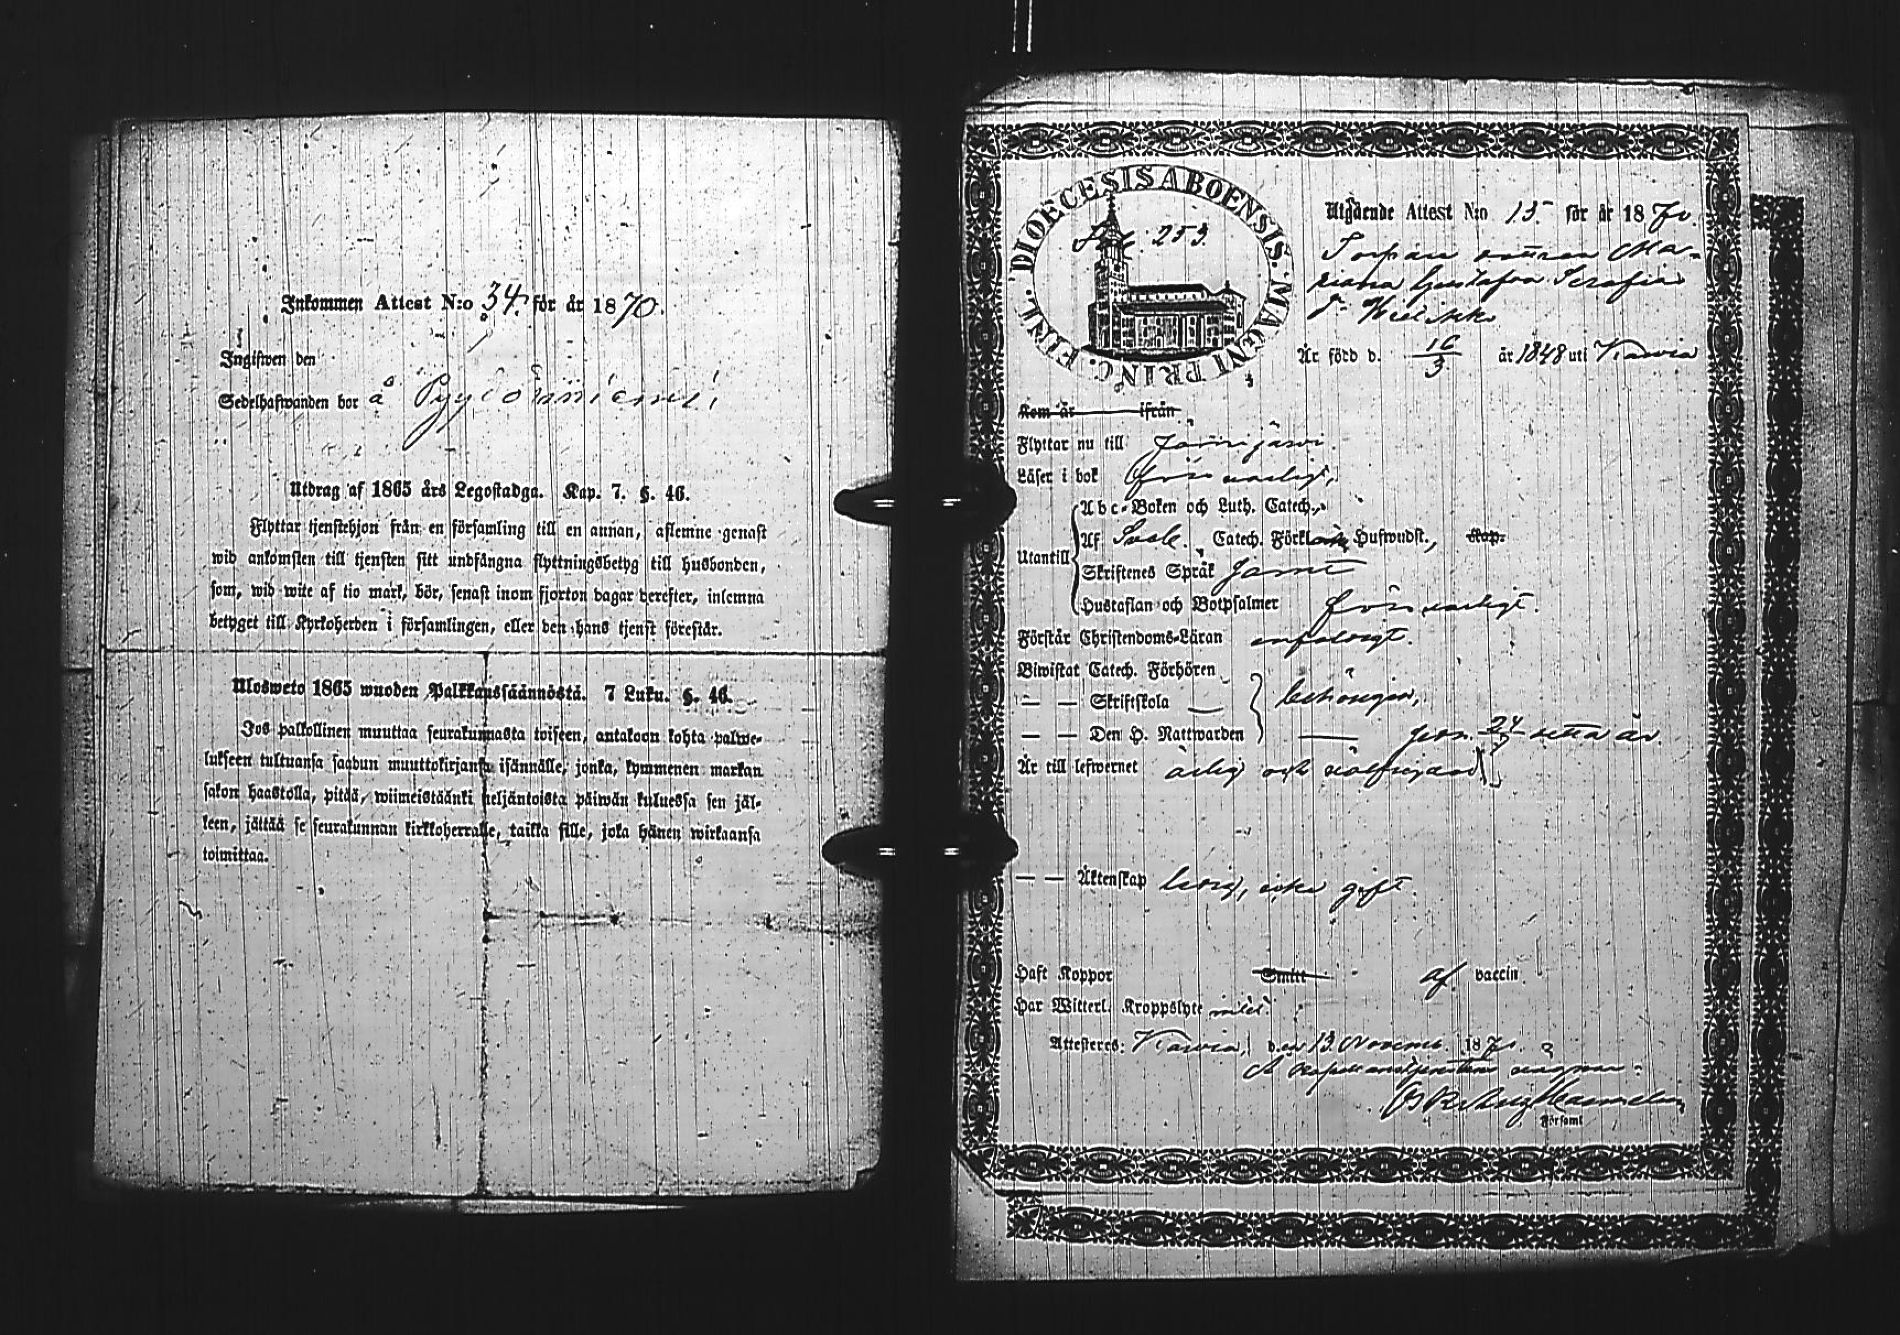 Inkommen Attest N:o 34. för år 1870.
Ingifwen den
Sedelhafwanden bor å
Utdrag af 1865 års Legostadga. Kap. 7. §. 46.
Flyttar tjenstehjon från en församling till en annan, aflemne genast
wid ankomsten till tjensten sitt undfångna flyttningsbetyg till husbonden,
som, wid wite af tio mark, bör, senast inom fjorton dagar derefter, inlemna
betyget till Kyrkoherden i församlingen, eller den hans tjenst förestår.
Ulosweto 1865 wuoden Palkkaussäännöstä. 7 Luku. §. 46.
Jos palkollinen muuttaa seurakunnasta toiseen, antakoon kohta palwe-
lukseen tultuansa saadun muuttokirjansa isännälle, jonka, kymmenen markan
sakon haastolla, pitää, wiimeistäänki neljäntoista päiwän kuluessa sen jäl-
keen, jättää se seurakunnan kirkkoherralle, taikka sille, joka hänen wirkaansa
toimittaa.
FINL. DIOECESIS ABOENSIS. MAGNI PRINC.
253.
Utgående Attest N:o 15 för år 1870.
Gustafva Serafia
Är född d. 16/3 år 1848 uti Kawia
Kom år ifrån
Flyttar nu till Jämijärvi.
Läser i bok försvarligt,
Utantill
Abc-Boken och Luth. Catech.,
Af Catech. Förklar. Husvudst.,
Skriftenes Språk
Hustaflan och Botpsalmer försvarligt.
Förstår Christendoms-Läran enfaldigt.
Biwistat Catech. Förhören
— — Skriftskola behörigen,
— — Den H. Nattwarden
Är till lefwernet ärlig och
— — Äktenskap ledig, icke gift.
Haft Koppor Smitt af vaccin.
Har Witterl. Kroppslyte
Attesteras: Kawia, den 13 Novemb. 1870.
Församl